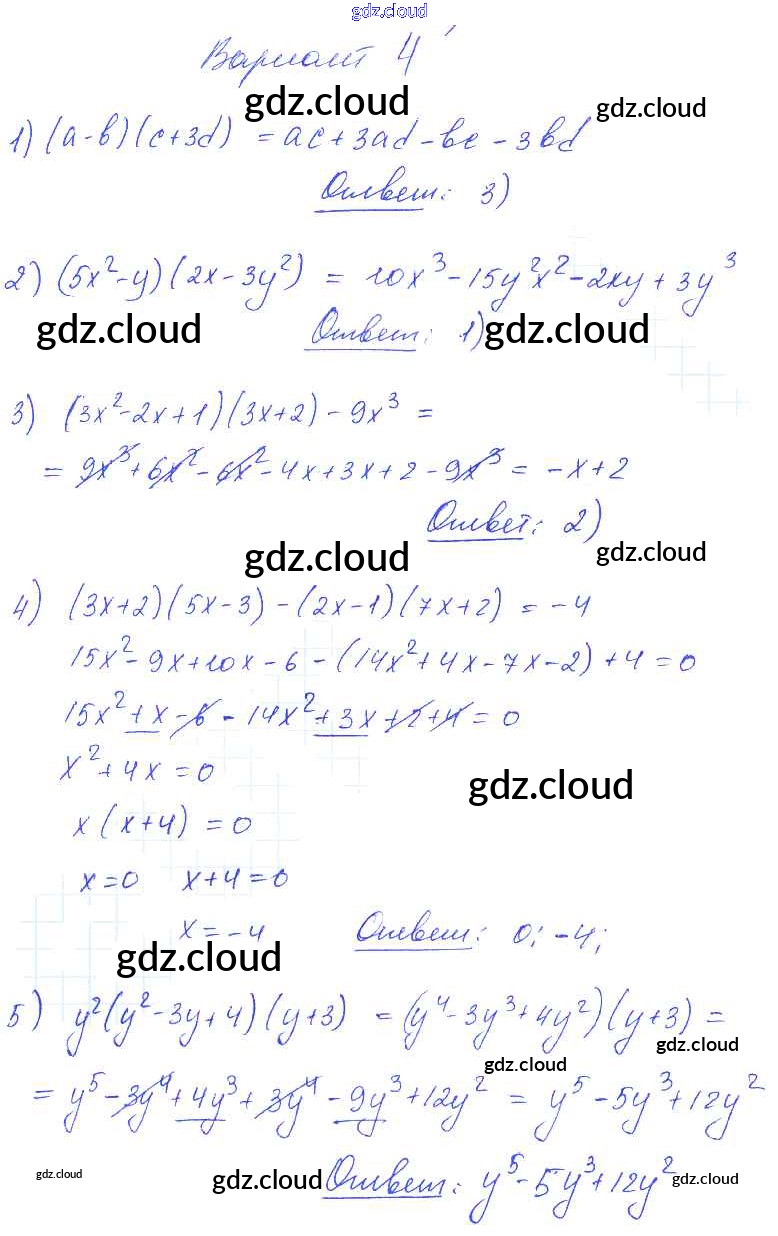 gdz.cloud
Вариант 4
gdz.cloud gdz.cloud
1) (a-b)(c+3d) = ac+3ad-bc-3bd
Ответ: 3)
2) (5x²-y)(2x-3y²) = 10x³-15y²x²-2xy+3y³
gdz.cloud Ответ: 1) gdz.cloud
3) (3x²-2x+1)(3x+2)-9x³ =
= 9x³+6x²-6x²-4x+3x+2-9x³ = -x+2
Ответ: 2)
gdz.cloud gdz.cloud
4) (3x+2)(5x-3)-(2x-1)(7x+2) = -4
15x²-9x+10x-6-(14x²+4x-7x-2)+4=0
15x²+x-6-14x²+3x+2+4=0
x²+4x=0
gdz.cloud
x(x+4)=0
x=0 x+4=0
x=-4 Ответ: 0; -4;
gdz.cloud
5) y²(y²-3y+4)(y+3) = (y⁴-3y³+4y²)(y+3) =
gdz.cloud
gdz.cloud
= y⁵-3y⁴+4y³+3y⁴-9y³+12y² = y⁵-5y³+12y²
gdz.cloud gdz.cloud Ответ: y⁵-5y³+12y² gdz.cloud